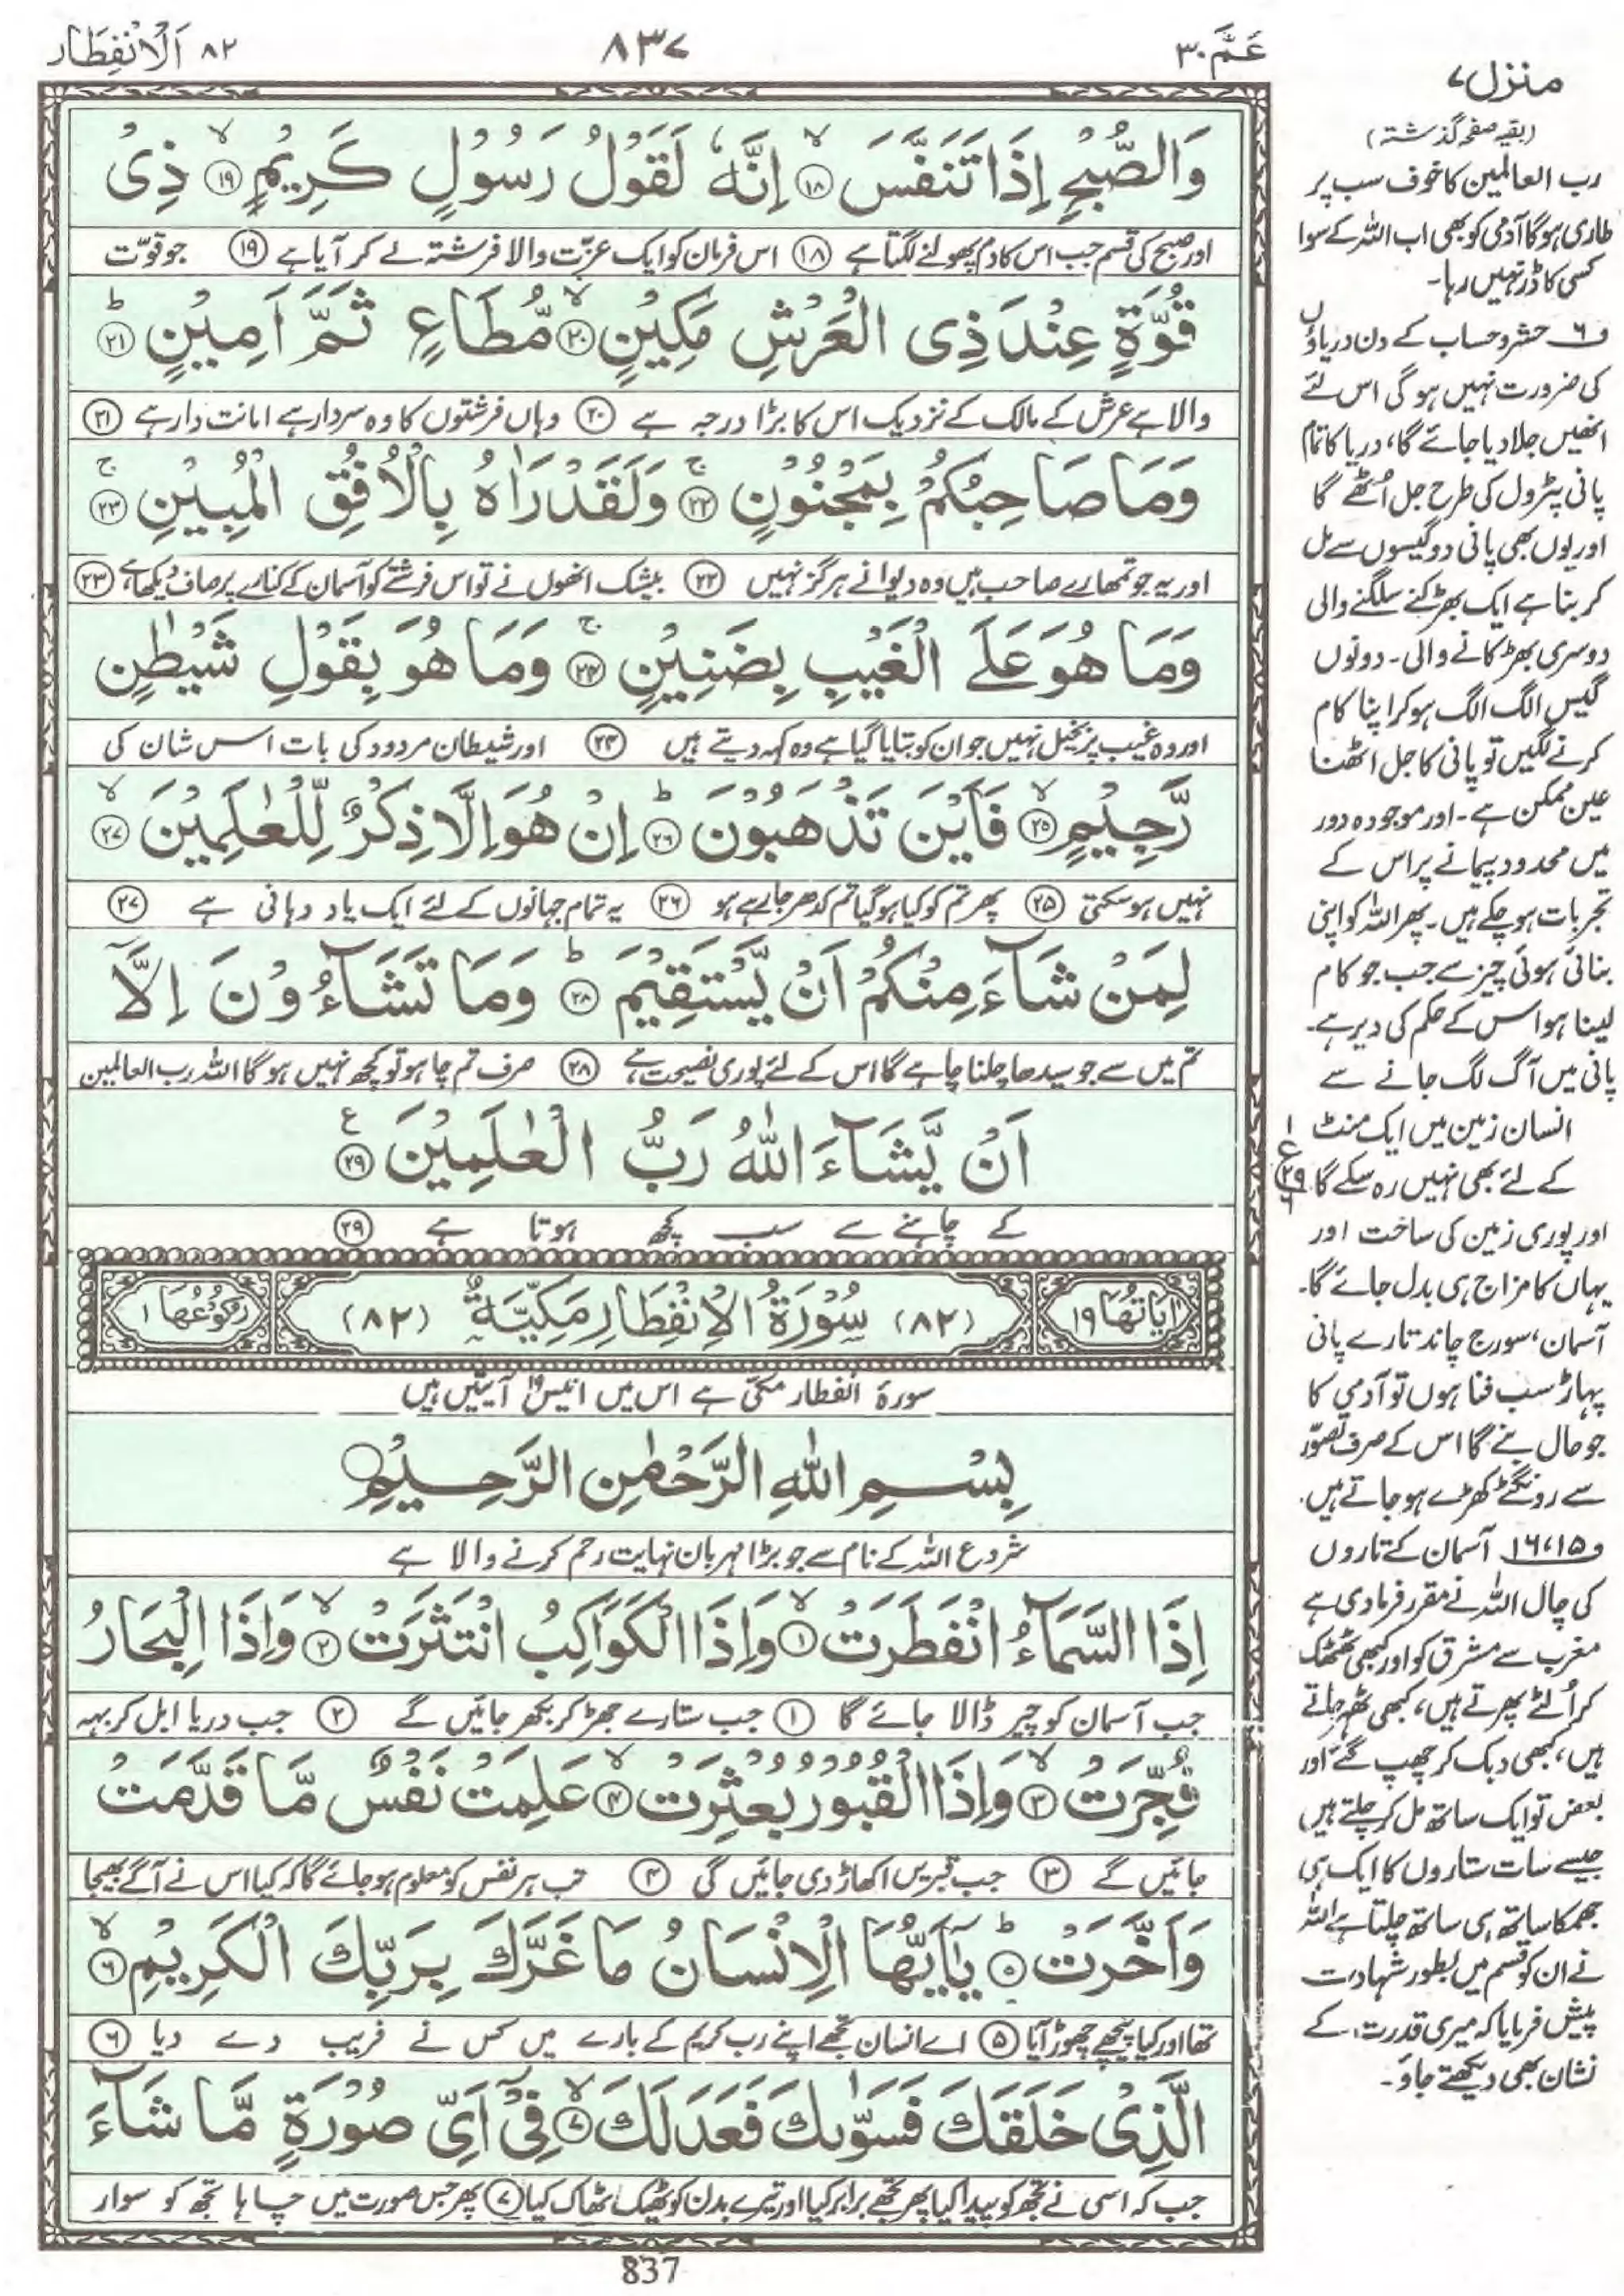 عَمَّ ۳۰
۸۳۷
۸۲ اَلْاِنْفِطَار
وَالصُّبْحِ اِذَا تَنَفَّسَ ۙ﴿۱۸﴾ اِنَّهٗ لَقَوْلُ رَسُوْلٍ كَرِيْمٍ ۙ﴿۱۹﴾ ذِىْ
اور صبح کی قسم جب اس کا دم پھولنے لگتا ہے ﴿۱۸﴾ اس فرمان کو ایک عزّت والا فرشتہ لے کر آیا ہے ﴿۱۹﴾ جو قوّت
قُوَّةٍ عِنْدَ ذِى الْعَرْشِ مَكِيْنٍ ۙ﴿۲۰﴾ مُّطَاعٍ ثَمَّ اَمِيْنٍ ؕ﴿۲۱﴾
والا ہے عرش کے مالک کے نزدیک اس کا بڑا درجہ ہے ﴿۲۰﴾ وہاں فرشتوں کا وہ سردار ہے امانت دار ہے ﴿۲۱﴾
وَمَا صَاحِبُكُمْ بِمَجْنُوْنٍ ۚ﴿۲۲﴾ وَلَقَدْ رَاٰهُ بِالْاُفُقِ الْمُبِيْنِ ۚ﴿۲۳﴾
اور یہ جو تمھارے صاحب ہیں وہ دیوانے ہرگز نہیں ﴿۲۲﴾ بیشک انھوں نے تو اس فرشتے کو آسمان کے کنارے پر صاف دیکھا ہے ﴿۲۳﴾
وَمَا هُوَ عَلَى الْغَيْبِ بِضَنِيْنٍ ۚ﴿۲۴﴾ وَمَا هُوَ بِقَوْلِ شَيْطٰنٍ
اور وہ غیب پر بخیل نہیں جو ان کو بتایا گیا ہے وہ کہہ دیتے ہیں ﴿۲۴﴾ اور شیطان مردود کی بات اس شان کی
رَّجِيْمٍ ۙ﴿۲۵﴾ فَاَيْنَ تَذْهَبُوْنَ ؕ﴿۲۶﴾ اِنْ هُوَ اِلَّا ذِكْرٌ لِّلْعٰلَمِيْنَ ۙ﴿۲۷﴾
نہیں ہو سکتی ﴿۲۵﴾ پھر تم کو کیا ہو گیا تم کدھر جا رہے ہو ﴿۲۶﴾ یہ تمام جہانوں کے لئے ایک یاد دہانی ہے ﴿۲۷﴾
لِمَنْ شَآءَ مِنْكُمْ اَنْ يَّسْتَقِيْمَ ؕ﴿۲۸﴾ وَمَا تَشَآءُوْنَ اِلَّاۤ
تم میں سے جو سیدھا چلنا چاہے گا اس کے لئے پوری نصیحت ہے ﴿۲۸﴾ صرف تم چاہو تو کچھ نہیں ہوگا اللہ رب العالمین
اَنْ يَّشَآءَ اللّٰهُ رَبُّ الْعٰلَمِيْنَ ﴿۲۹﴾ ع
کے چاہنے سے سب کچھ ہوتا ہے ﴿۲۹﴾
اٰيَاتُهَا ۱۹ (۸۲) سُوْرَةُ الْاِنْفِطَارِ مَكِّيَّةٌ (۸۲) رُكُوْعُهَا ۱
سورۂ انفطار مکی ہے اس میں انیس ۱۹ آیتیں ہیں
بِسْمِ اللّٰهِ الرَّحْمٰنِ الرَّحِيْمِ
شروع اللہ کے نام سے جو بڑا مہربان نہایت رحم کرنے والا ہے
اِذَا السَّمَآءُ انْفَطَرَتْ ۙ﴿۱﴾ وَاِذَا الْكَوَاكِبُ انْتَثَرَتْ ۙ﴿۲﴾ وَاِذَا الْبِحَارُ
جب آسمان کو چیر ڈالا جائے گا ﴿۱﴾ جب ستارے جھڑ کر بکھر جائیں گے ﴿۲﴾ جب دریا ابل کر بہہ
فُجِّرَتْ ۙ﴿۳﴾ وَاِذَا الْقُبُوْرُ بُعْثِرَتْ ۙ﴿۴﴾ عَلِمَتْ نَفْسٌ مَّا قَدَّمَتْ
جائیں گے ﴿۳﴾ جب قبریں اکھاڑ دی جائیں گی ﴿۴﴾ تب ہر نفس کو معلوم ہو جائے گا کہ کیا اس نے آگے بھیجا
وَاَخَّرَتْ ؕ﴿۵﴾ يٰۤاَيُّهَا الْاِنْسَانُ مَا غَرَّكَ بِرَبِّكَ الْكَرِيْمِ ۙ﴿۶﴾
تھا اور کیا پیچھے چھوڑ آیا ﴿۵﴾ اے انسان تجھے اپنے رب کریم کے بارے میں کس نے فریب دے دیا ﴿۶﴾
الَّذِىْ خَلَقَكَ فَسَوّٰىكَ فَعَدَلَكَ ۙ﴿۷﴾ فِىْۤ اَىِّ صُوْرَةٍ مَّا شَآءَ
جب کہ اسی نے تجھ کو پیدا کیا پھر تجھے برابر کیا اور تیرے بدن کو ٹھیک ٹھاک کیا ﴿۷﴾ پھر جس صورت میں چاہا تجھ کو سوار
837
منزل ۷
(بقیہ صفحہ گذشتہ)
رب العالمین کا خوف سب پر
طاری ہوگا آدمی کو بھی اب اللہ کے سوا
کسی کا ڈر نہیں رہا۔
ف۶ حشر و حساب کے دن دریاؤں
کی ضرورت نہیں ہوگی اس لئے
انھیں جلا دیا جائے گا، دریا کا تمام
پانی پٹرول کی طرح جل اُٹھے گا
اور یوں بھی پانی دو گیسوں سے مل
کر بنا ہے ایک بھڑکنے سلگنے والی
دوسری بھڑکانے والی۔ دونوں
گیس الگ الگ ہو کر اپنا کام
کرنے لگیں تو پانی کا جل اٹھنا
عین ممکن ہے۔ اور موجودہ دور
میں محدود پیمانے پر اس کے
تجربات ہو چکے ہیں۔ پھر اللہ کو اپنی
بنائی ہوئی چیز سے جب جو کام
لینا ہو اس کے حکم کی دیر ہے۔
پانی میں آگ لگ جانے سے
انسان زمین میں ایک منٹ
کے لئے بھی نہیں رہ سکے گا
۱
ع
۲۹
۶
اور پوری زمین کی ساخت اور
یہاں کا مزاج ہی بدل جائے گا۔
آسمان، سورج چاند تارے پانی
پہاڑ سب فنا ہوں تو آدمی کا
جو حال بنے گا اس کے صرف تصوّر
سے رونگٹے کھڑے ہو جاتے ہیں۔
ف۱۵،۱۶ آسمان کے تاروں
کی چال اللہ نے مقرر فرما دی ہے
مغرب سے مشرق کو اور کبھی ٹھٹھک
کر اُلٹے پھرتے ہیں، کبھی ٹھہر جاتے
ہیں، کبھی دبک کر چھپ گئے اور
بعض تو ایک ساتھ مل کر چلتے ہیں
جیسے سات ستاروں کا ایک ہی
جھمکا ساتھ ہی ساتھ چلتا ہے اللہ
نے ان کو قسم میں بطور شہادت
پیش فرمایا کہ میری قدرت کے
نشان بھی دیکھتے جاؤ۔